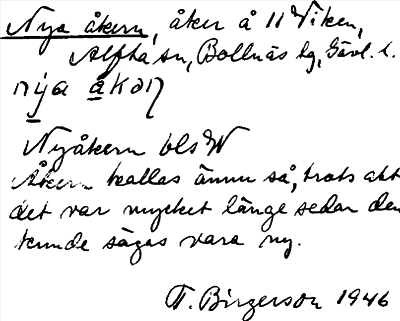 Nya åkern, åker å 11 Viken,
Alfta sn, Bollnäs tg, Gävl. l.
nya åkəɳ
Nyåkern bls W
Åkern kallas ännu så, trots att
det var mycket länge sedan den
kunde sägas vara ny.
T. Birgerson 1946